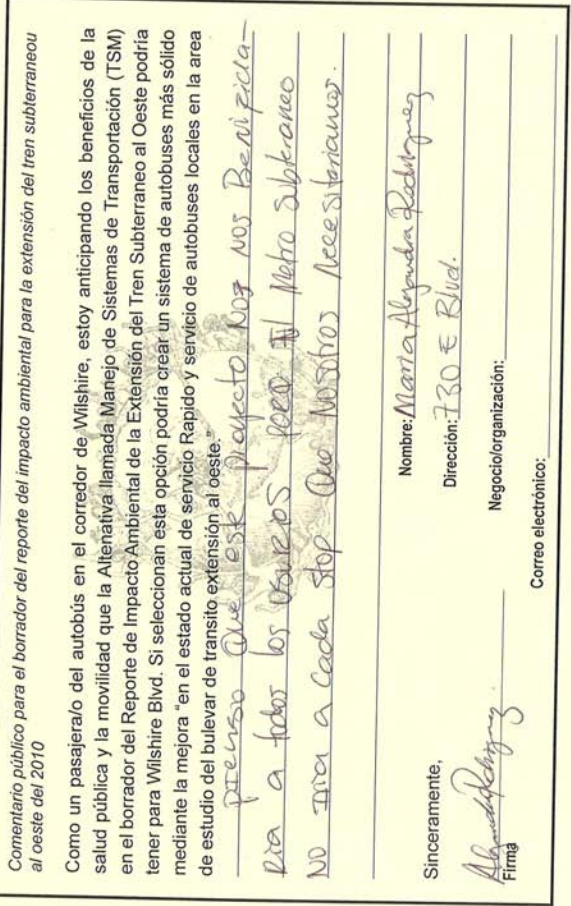 Comentario público para el borrador del reporte del impacto ambiental para la extensión del tren subterraneou
al oeste del 2010
Como un pasajera/o del autobús en el corredor de Wilshire, estoy anticipando los beneficios de la
salud pública y la movilidad que la Altenativa llamada Manejo de Sistemas de Transportación (TSM)
en el borrador del Reporte de Impacto Ambiental de la Extensión del Tren Subterraneo al Oeste podría
tener para Wilshire Blvd. Si seleccionan esta opción podría crear un sistema de autobuses más sólido
mediante la mejora "en el estado actual de servicio Rapido y servicio de autobuses locales en la area
de estudio del bulevar de transito extensión al oeste."
Pienso Que este proyecto Nos Nos Benizicia-
Ria a todos los usuarios pero El Metro Subteraneo
No Iria a cada stop Que Nosotros Necesitariamos.
Sinceramente,
Nombre: Maria Alejandra Rodriguez
Dirección: 730 E Blvd.
Negocio/organización:
Firma
Correo electrónico: